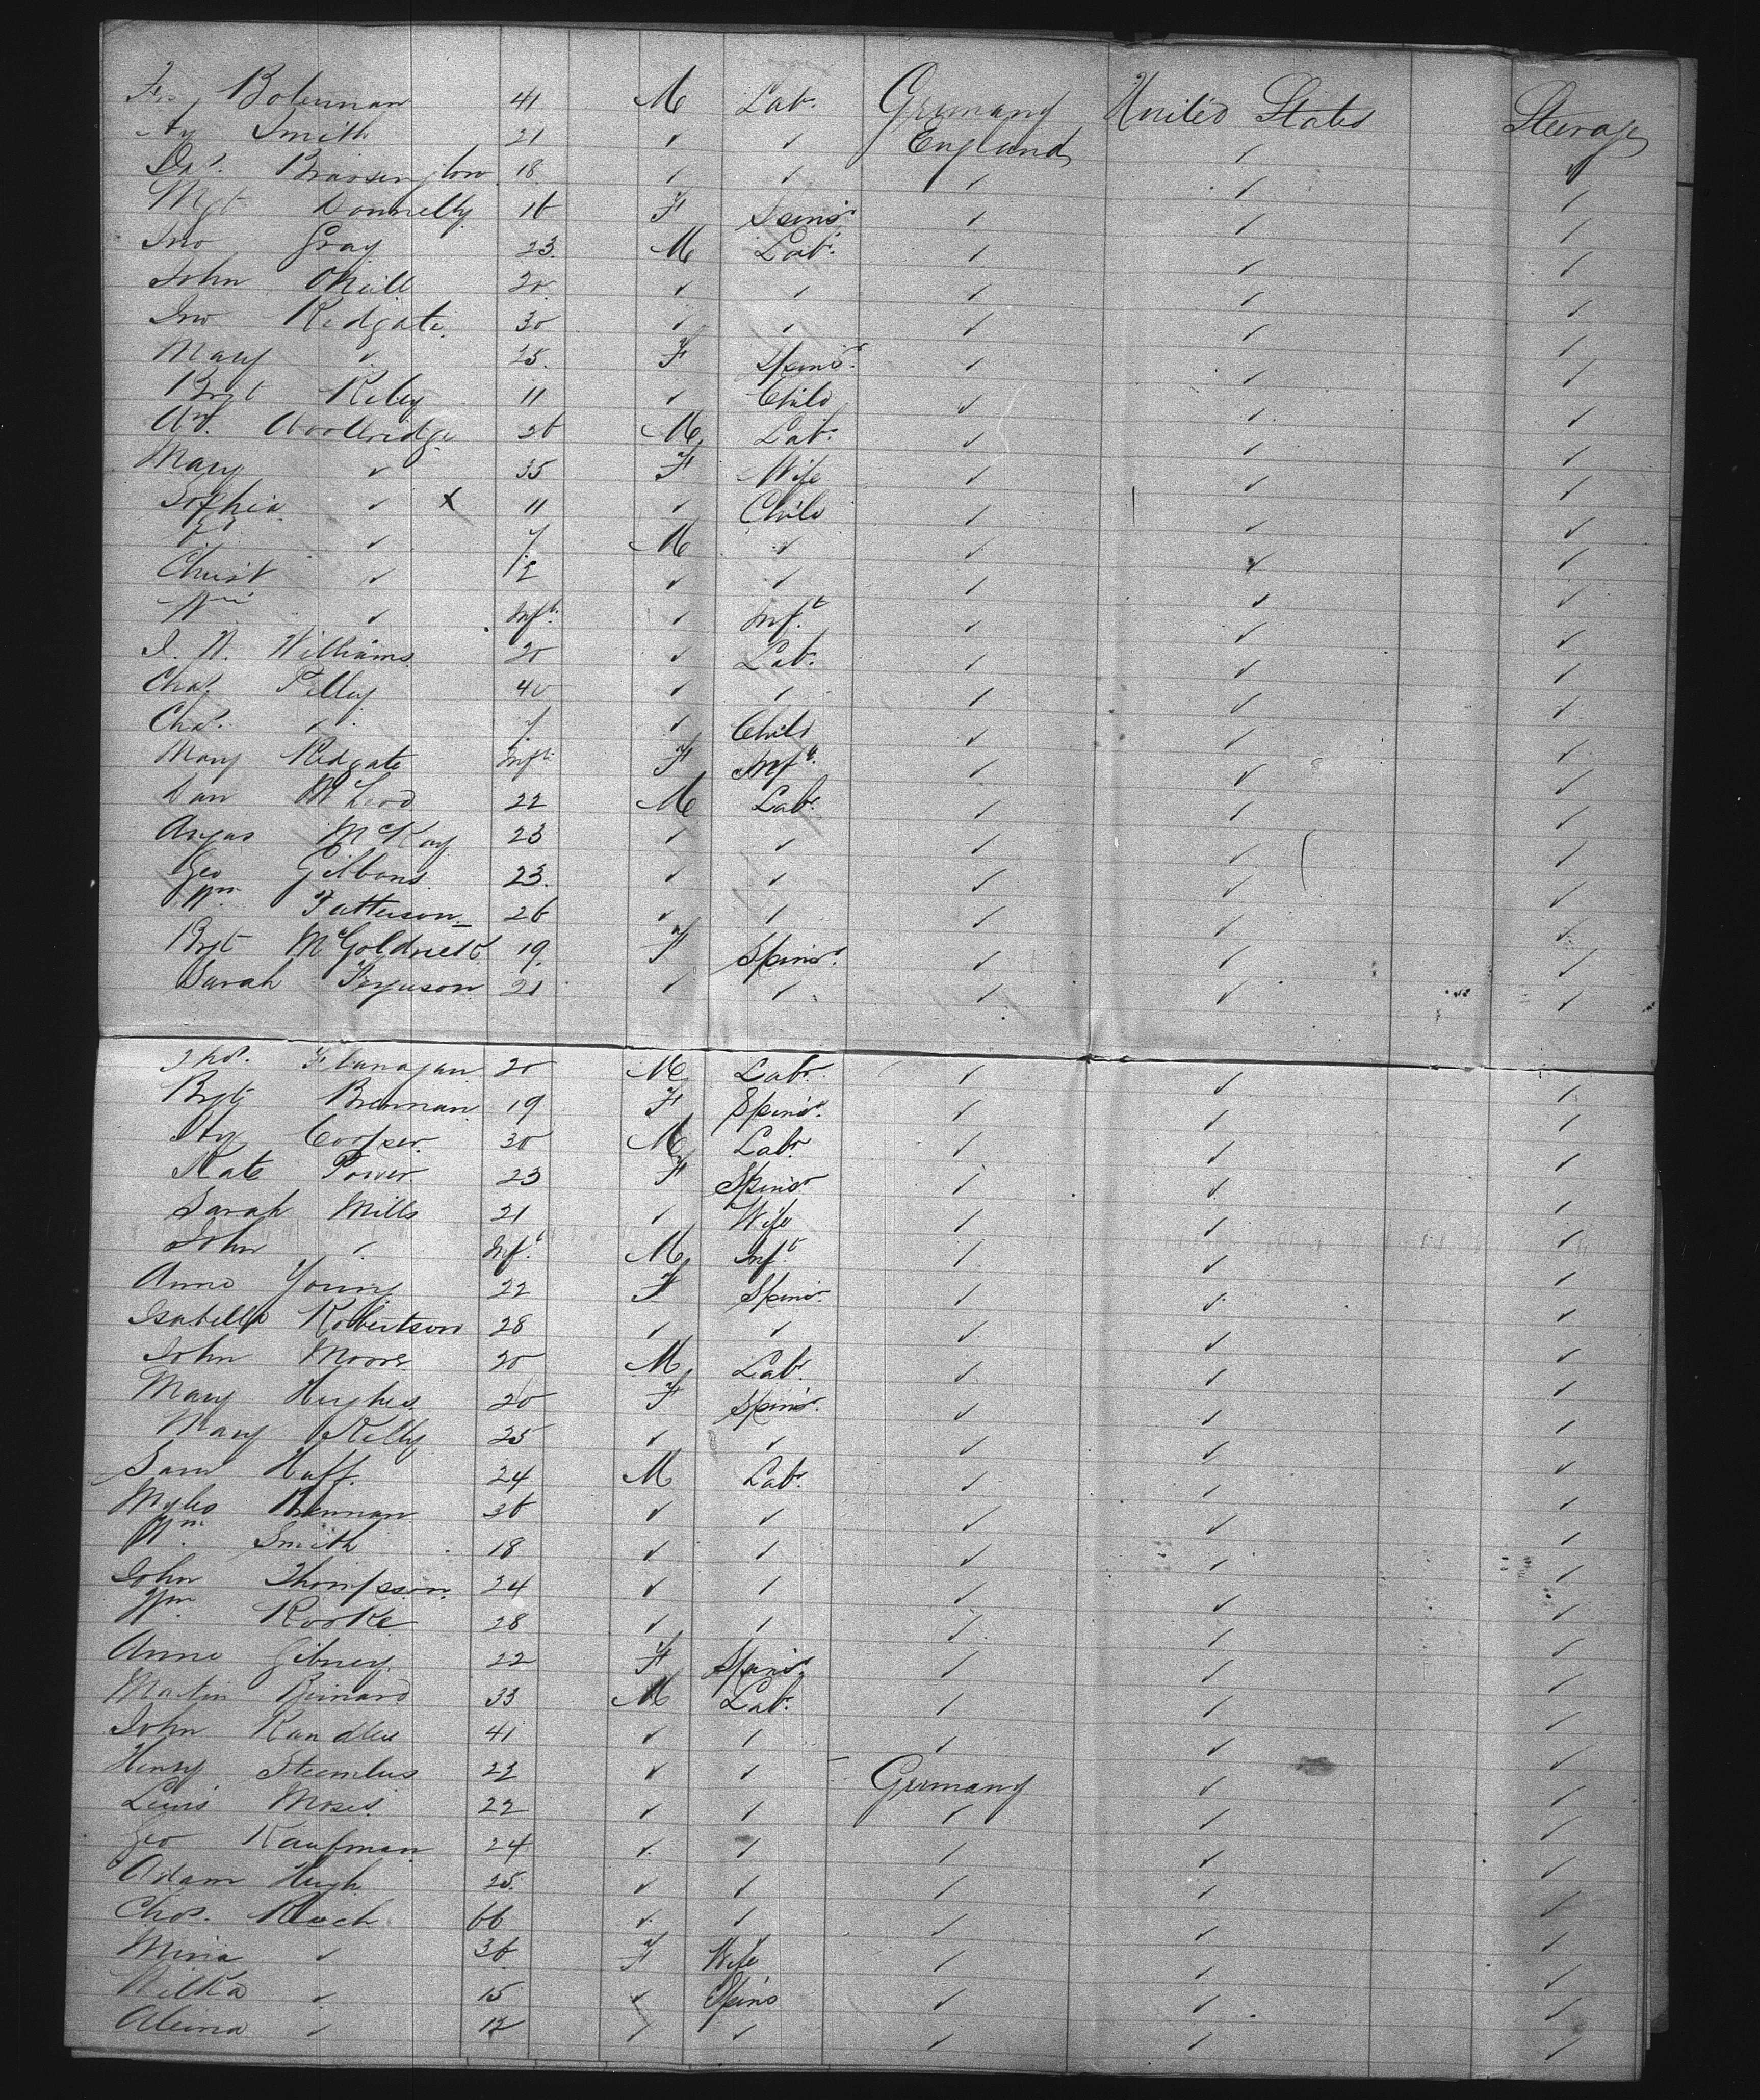 Bolunnan 41 M Lab. Germany United States Steerage
Hy Smith 21 ✓ ✓ England ✓ ✓
Da. Brassington 18 ✓ ✓ ✓ ✓ ✓
Mgt Donnelly 16 F Spinr ✓ ✓ ✓
Jno Gray 23 M Labr ✓ ✓ ✓
John ONeill 20 ✓ ✓ ✓ ✓ ✓
Jno Redgate 30 ✓ ✓ ✓ ✓ ✓
Mary ✓ 25 F Spinr ✓ ✓ ✓
Brgt Riley 11 ✓ Child ✓ ✓ ✓
Woolbridge 26 M Labr ✓ ✓ ✓
Mary ✓ 35 F Wife ✓ ✓ ✓
Sophia ✓ x 11 ✓ Child ✓ ✓ ✓
✓ 7 M ✓ ✓ ✓ ✓
Christ ✓ 2 ✓ ✓ ✓ ✓ ✓
Wm ✓ Inft ✓ Inft ✓ ✓ ✓
J. W. Williams 20 ✓ Lab. ✓ ✓ ✓
Chas. Pelley 40 ✓ ✓ ✓ ✓ ✓
Chas. ✓ 7 ✓ Child ✓ ✓ ✓
Mary Redgate Inft F Inft ✓ ✓ ✓
Dan McLeod 22 M Labr ✓ ✓ ✓
Angus McKay 23 ✓ ✓ ✓ ✓ ✓
Geo Gibbons 23 ✓ ✓ ✓ ✓ ✓
Wm Patterson 26 ✓ ✓ ✓ ✓ ✓
Brgt McGoldrick 19 F Spinr ✓ ✓ ✓
Sarah Ferguson 21 ✓ ✓ ✓ ✓ ✓
Thos. Flanagan 20 M Labr ✓ ✓ ✓
Brgt Brennan 19 F Spinr ✓ ✓ ✓
Hy Cooper 30 M Labr ✓ ✓ ✓
Kate Power 23 F Spinr ✓ ✓ ✓
Sarah Mills 21 ✓ Wife ✓ ✓ ✓
John ✓ Inft M Inft ✓ ✓ ✓
Anne Young 22 F Spinr ✓ ✓ ✓
Isabella Robertson 28 ✓ ✓ ✓ ✓ ✓
John Moore 20 M Labr ✓ ✓ ✓
Mary Hughes 20 F Spinr ✓ ✓ ✓
Mary Kelly 25 ✓ ✓ ✓ ✓ ✓
Saml Huff 24 M Labr ✓ ✓ ✓
Myles Brennan 36 ✓ ✓ ✓ ✓ ✓
Wm Smith 18 ✓ ✓ ✓ ✓ ✓
John Thompson 24 ✓ ✓ ✓ ✓ ✓
Wm Rooke 28 ✓ ✓ ✓ ✓ ✓
Anne Gibney 22 F Spinr ✓ ✓ ✓
Martin Reinard 33 M Lab. ✓ ✓ ✓
John Randles 41 ✓ ✓ ✓ ✓ ✓
Henry 22 ✓ ✓ Germany ✓ ✓
Lewis Moses 22 ✓ ✓ ✓ ✓ ✓
Geo Kaufman 24 ✓ ✓ ✓ ✓ ✓
Adam Hugh 25 ✓ ✓ ✓ ✓ ✓
Chas. Ruch 66 ✓ ✓ ✓ ✓ ✓
Mina ✓ 36 F Wife ✓ ✓ ✓
Wilka ✓ 15 ✓ Spins ✓ ✓ ✓
Aleina ✓ 12 ✓ ✓ ✓ ✓ ✓